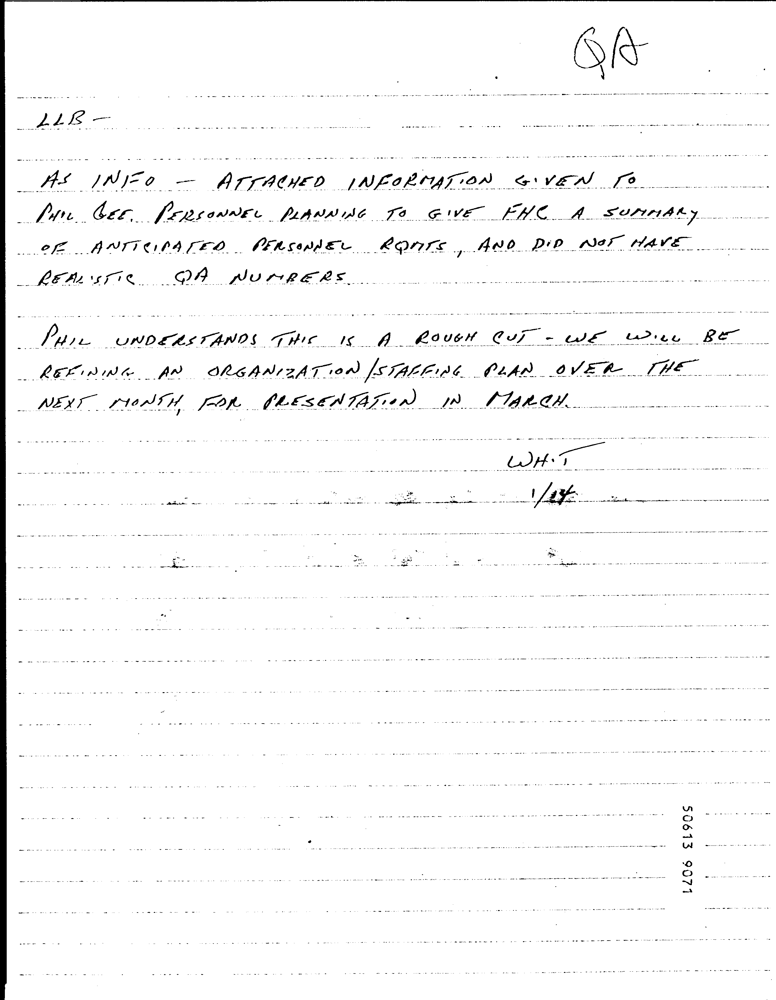 QA
LLB -
AS INFO - ATTACHED INFORMATION GIVEN TO
PHIL GEE. PERSONNEL PLANNING TO GIVE FHC A SUMMARY
OF ANTICIPATED PERSONNEL RQMTS, AND DID NOT HAVE
REALISTIC QA NUMBERS
PHIL UNDERSTANDS THIS IS A ROUGH CUT - WE WILL BE
REFINING AN ORGANIZATION/STAFFING PLAN OVER THE
NEXT MONTH, FOR PRESENTATION IN MARCH.
WHIT
1/14
50613 9071